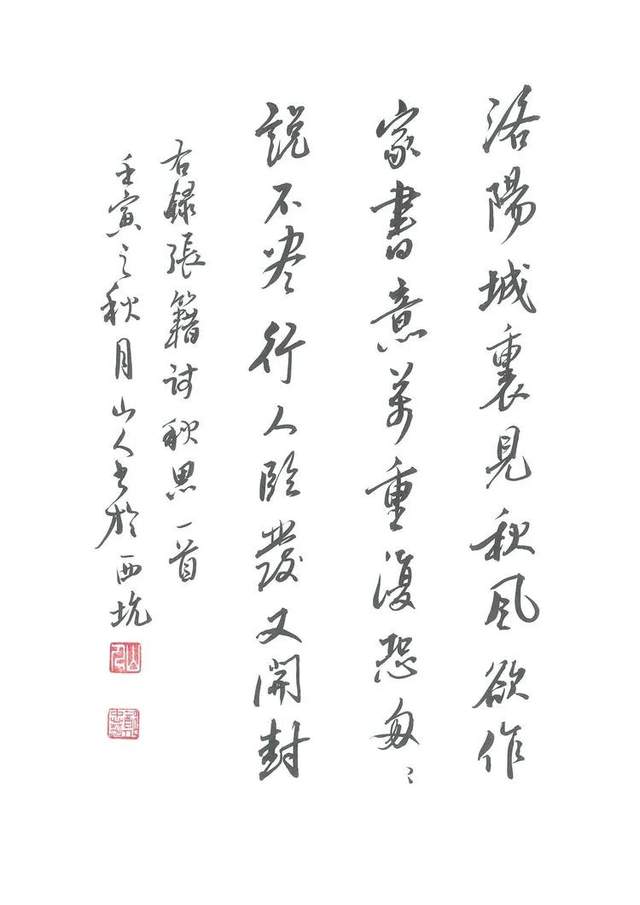 洛陽城裏見秋風欲作
家書意萬重復恐匆〻
說不盡行人臨發又開封
右録張籍詩秋思一首
壬寅之秋月山人書於西坑